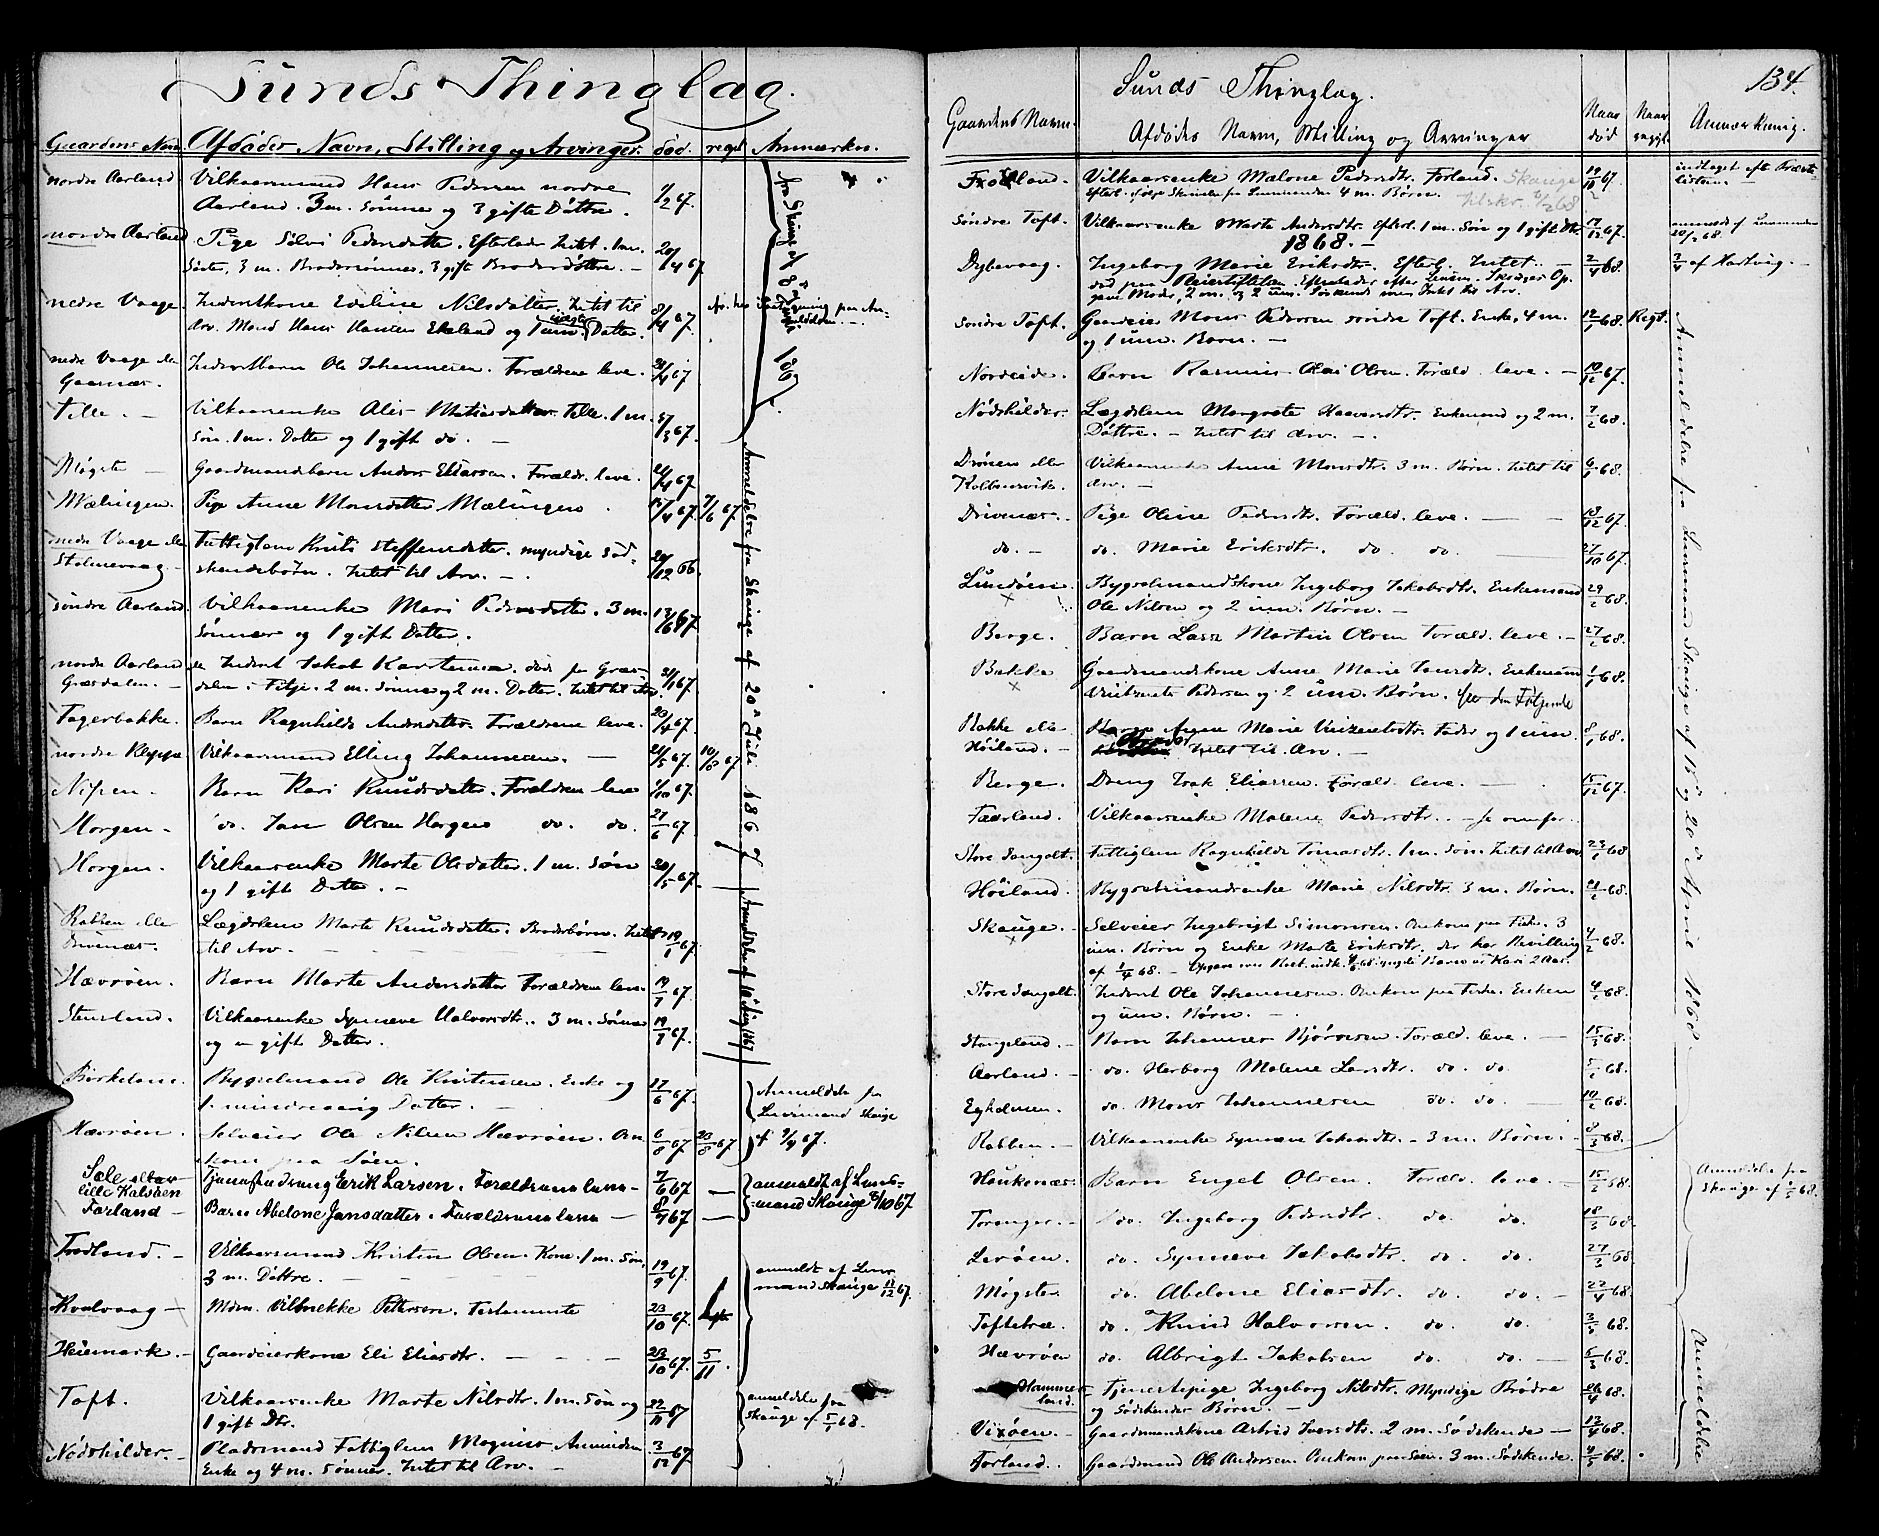 Sunds Thinglag.
Gaardens Navn. Afdødes Navn, Stilling og Arvinger. død. regst Anmærkn.
nordre Aarland Vilkaarsmand Hans Pedersen nordre
Aarland. 3 m. Sønner og 3 gifte Døttre. 1/2 67.
nordre Aarland Pige Sølvi Pedersdatter. Efterlader Intet. 1 m.
Søster, 3 m. Brodersønner, 3 gifte Broderdøttre. – 20/4 67
nedre Vaage. Inderstkone Eveline Nilsdatter. Intet til
Arv. Mand Hans Hansen Ekeland og 1 um. Datter. 8/4 67.
nedre Vaage eller
Gaarnæs. Inderstbarn Ole Johannesen. Forældrene leve. 67
Telle. – Vilkaarsenke Alis Mathiasdatter Telle. 1 m.
Søn. 1 m. Datter og 1 gift do. – /3 67.
Møgster – Gaardmandsbarn Anders Eliassen. Forældr. leve. 24/4 67
Mælingen. Pige Anne Monsdatter Mælingen. 15/4 67. 7/6 67
nedre Vaage eller
Stolmevaag – Fattiglem Brita Steffensdatter. myndige Sød-
skendebørn. Intet til Arv. – 29/12 66.
søndre Aarland. Vilkaarsenke Mari Pedersdatter. 3 m.
Sønner og 1 gift Datter. 13/6 67
nordre Aarland eller Græsdalen. – Inderst Jakob Karstensen. død paa Græs-
dalen i Fitje. 2 m. Sønner og 2 m. Døttr. Intet til Arv. 31/1 67.
Fagerbakke. Barn Ragnhilde Andersdatter. Forældrene leve. 20/4 67.
nordre Kleppe Vilkaarsmand Elling Johannesen. – 21/5 67. 10/8 67
Nipen. – Barn Kari Knudsdatter. Forældrene leve 67.
Horgen – do. Jan Olsen Horgen do. do. 21/6 67
Horgen. Vilkaarsenke Marte Olsdatter. 1 m. Søn
og 1 gift Datter. – 20/5 67.
Rabben eller
Drivenæs. Lægdslem Marte Knudsdatter. Broderbørn. Intet
til Arv. – 19/1 67.
Hævrøen. Barn Marte Andersdatter Forældrene leve. 19/7 67.
Stensland. Vilkaarsenke Synneve Halvorsdtr. 3 m. Sønner
og en gift Datter. 19/7 67.
Birkeland. Bygselmand Ole Kristensen. Enke og
1. mindreaarig Datter. – 27/6 67. Anmeldelse fra
Lensmand Skauge
af 9/9 67.
Hævrøen. Selveier Ole Nilsen Hævrøen. Om-
kom paa Søen. 6/8 67 23/8 67
Sæle eller
lille Kalsøen Tjenestedreng Erik Larsen. Forældrene leve – 7/6 67 – anmeldt af Lens-
mand Skauge 8/10 67
Forland – Barn Abelone Jansdatter. Forældrene leve – 8/9 67 –
Trædland. – Vilkaarsmand Kristen Olsen. Kone. 1 m. Søn,
3 m. Døttre. – 19/9 67. anmeldt af Lens-
mand Skauge 11/12 67.
Kvalvaag – Mdm. Vibrekke Petersen. Testamente 23/10 67.
Heiemark. – Gaardeierkone Eli Eliasdtr. – – – 23/10 67. 5/11.
Toft. Vilkaarsenke Marte Nilsdtr. 1 m. Søn og
1 gift Dtr. 22/11 67 anmeldelse fra
Skauge af 5/1 68.
Nødskilder. – Pladsmand Fattiglem Magnus Amundsen
Enke og 4 m. Sønner. Intet til Arv. – 3/12 67
Anmeldelse fra Skauge af 20de Juli 1867
134.
Sunds Thinglag.
Gaardens Navn. Afdødes Navn, Stilling og Arvinger Naar død Naar regist. Anmærkning.
Forland. Vilkaarsenke Malene Pedersdtr. Forland. Skauge
4 m. Børn. tilskr. 67. indtaget efter
listen. –
Søndre Toft. Vilkaarsenke Marte Andersdtr. Efterl. 1 m. Søn og 1 gift Dtr. 17/12 67. anmeldt af Lensmanden
20/2 68.
1868. –
Dybevaag. Ingeborg Marie Eriksdtr. Efterl. Intet. –
død paa Pleiestiftelsen. 2/4 68. 3/4 af Hartvig. –
Søndre Toft. Gaardeier Mons Pedersen søndre Toft. Enke, 4 m.
og 1 um. Børn. – 12/1 68. Regt.
Nordeide. Barn Rasmus Olai Olsen. Foræld. leve. – 10/12 67.
Nødskilder. Lægdslem Margrete Haavarsdtr. Enkemand og 2 m.
Døttre. – Intet til Arv. –. 7/2 68.
Drønen eller
Kolbensvik. Vilkaarsenke Anne Monsdtr. 3 m. Børn. Intet til
Arv. – 6/1 68.
Drivenæs. – Pige Oline Pedersdtr. Foræld. leve. – 18/12 67.
do. – do. Marie Eriksdtr. do. do. 27/10 67.
Lundøen. Bygselmandskone Ingeborg Jakobsdtr. Enkemand
Ole Nilsen og 2 um. Børn. – 29/2 68.
Berge. Barn Lars Martin Olsen Foræld. leve. – 27/ 68.
Bakke Gaardmandskone Anne Marie Jansdtr. Enkemand
Vinzents Pedersen og 2 um. Børn. see den Følgende 1/1 68.
Bakke eller
Høiland. – Barn Anne Marie Vinzentsdtr. Fader og 1 um.
Broder Intet til Arv – 8/1 68.
Berge. – Dreng Isak Eliassen. Foræld. leve. – 15/12 67.
Færland. Vilkaarsenke Malene Pedersdtr. . – se ovenfor.
Store Sangolt. Fattiglem Ragnhilde Tomasdtr. 1 m. Søn. Intet til Arv 23/1 68
Høiland. Bygselmandsenke Marie Nilsdtr. 3 m. Børn. 21/2 68.
Skauge. – Selveier Ingebrigt Simonsen. Omkom paa Fiske. 3
um. Børn og Enke Marte Eriksdtr. der har Bevilling
af 1/4 68. – 4/2 68.
Store Sangolt. Inderst Ole Johannesen. Omkom paa Fiske. Enken
og um. Børn. – 4/2 68.
Stangeland. – Barn Johannes Bjørnsen. Foræld. leve. – 15/3 68.
Aarland. – do. Herborg Malene Larsdtr. do. do. 5/2 68.
Egholmen. do. Mons Johannesen do. do. – 10/2 68.
Rabben. – Vilkaarsenke Synneve Jakobsdtr. – 3 m. Børn. – 8/3 68.
Haukenæs. Barn Engel Olsen. Foræld. leve. – 15/2 68. Anmeldelse fra
Skauge af 68.
Toranger. – do. Ingeborg Pedersdtr. do. do. 18/3 68.
Lerøen. do. Synneve Jakobsdtr. do. do. 27/3 68
Møgster. do. Abelone Eliasdtr. do. do. – 22/4 68.
Toftetræ. do. Knud Halvorsen. do. do. 3/ 68.
Hævrøen do. Albrigt Jakobsen do. do. – 6/3 68.
Hammers-
land. – Tjenestepige Ingeborg Nilsdtr. Myndige Brødre
og Sødskendes Børn. – 26/4 68.
Vixøen. – Gaardmandskone Astrid Iversdtr. 2 m. Sødskende – 13/4 68.
Forland. Gaardmand Ole Andersen. Omkom paa Søen. 3 m. Sødskende. 68.
Anmeldelse fra Lensmand Skauge af 15 og 20de April 1868.
Anmeldelse